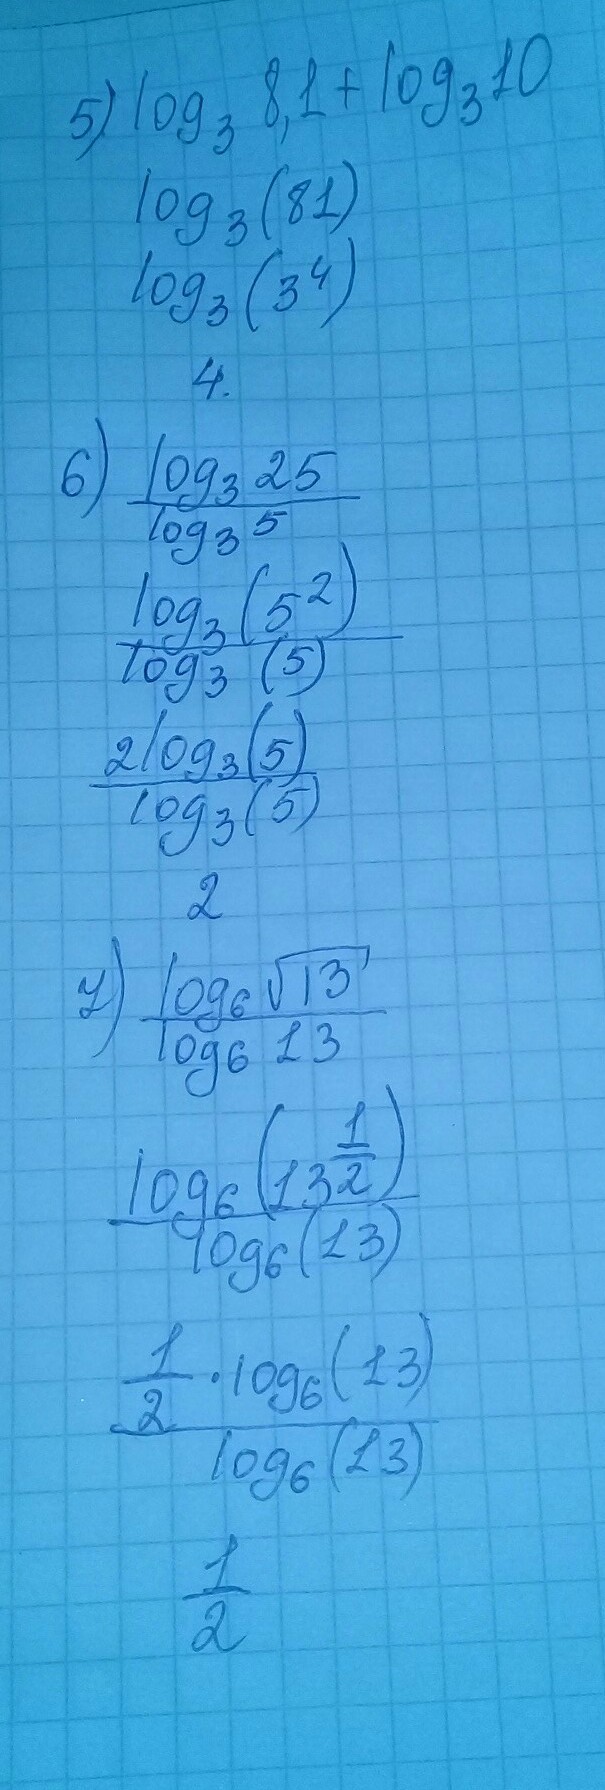 5) log₃ 8,1 + log₃ 10
log₃ (81)
log₃ (3⁴)
4.
6) log₃ 25
log₃ 5
log₃ (5²)
log₃ (5)
2 log₃ (5)
log₃ (5)
2
7) log₆ √13
log₆ 13
log₆ (13^(1/2))
log₆ (13)
1/2 · log₆ (13)
log₆ (13)
1
2